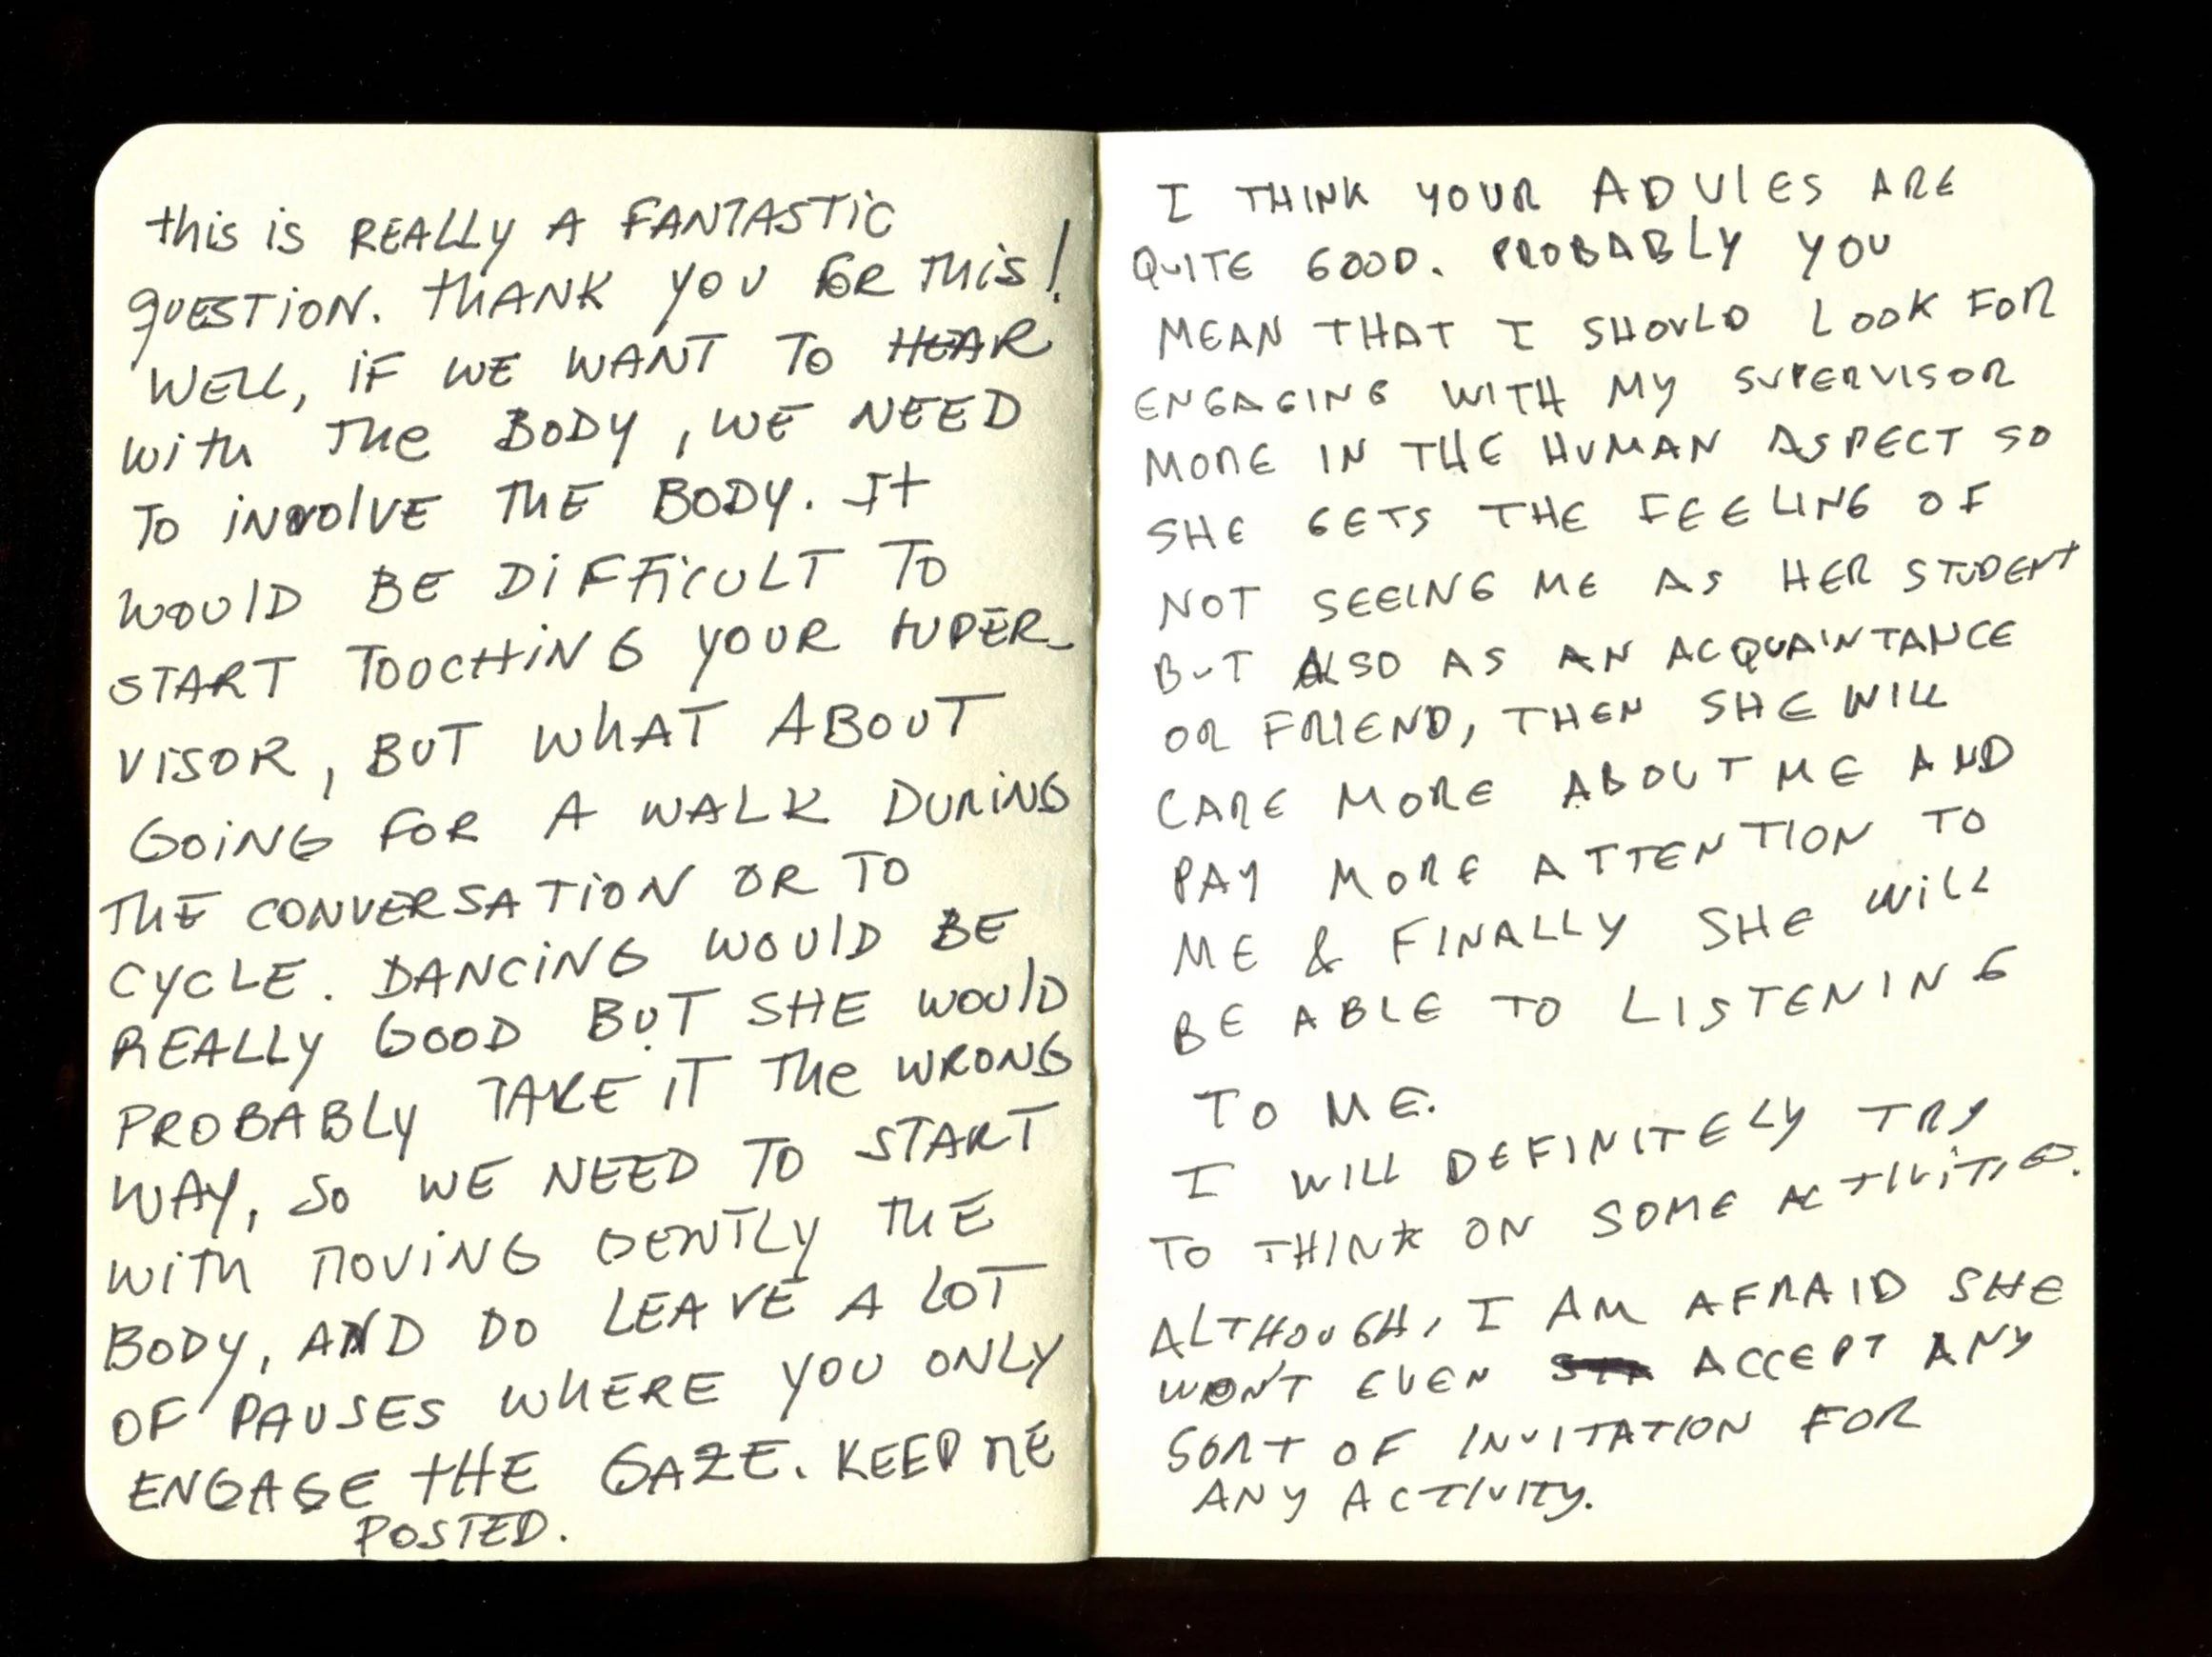 this is REALLY A FANTASTIC
QUESTION. THANK YOU FOR THIS!
WELL, IF WE WANT TO HEAR
WITH THE BODY, WE NEED
TO INVOLVE THE BODY. IT
WOULD BE DIFFICULT TO
START TOUCHING YOUR SUPER-
VISOR, BUT WHAT ABOUT
GOING FOR A WALK DURING
THE CONVERSATION OR TO
CYCLE. DANCING WOULD BE
REALLY GOOD BUT SHE WOULD
PROBABLY TAKE IT THE WRONG
WAY, SO WE NEED TO START
WITH MOVING GENTLY THE
BODY, AND DO LEAVE A LOT
OF PAUSES WHERE YOU ONLY
ENGAGE THE GAZE. KEEP ME
POSTED.
I THINK YOUR ADVIES ARE
QUITE GOOD. PROBABLY YOU
MEAN THAT I SHOULD LOOK FOR
ENGAGING WITH MY SUPERVISOR
MORE IN THE HUMAN ASPECT SO
SHE GETS THE FEELING OF
NOT SEEING ME AS HER STUDENT
BUT ALSO AS AN ACQUAINTANCE
OR FRIEND, THEN SHE WILL
CARE MORE ABOUT ME AND
PAY MORE ATTENTION TO
ME & FINALLY SHE WILL
BE ABLE TO LISTENING
TO ME.
I WILL DEFINITELY TRY
TO THINK ON SOME ACTIVITIES.
ALTHOUGH, I AM AFRAID SHE
WON'T EVEN ACCEPT ANY
SORT OF INVITATION FOR
ANY ACTIVITY.